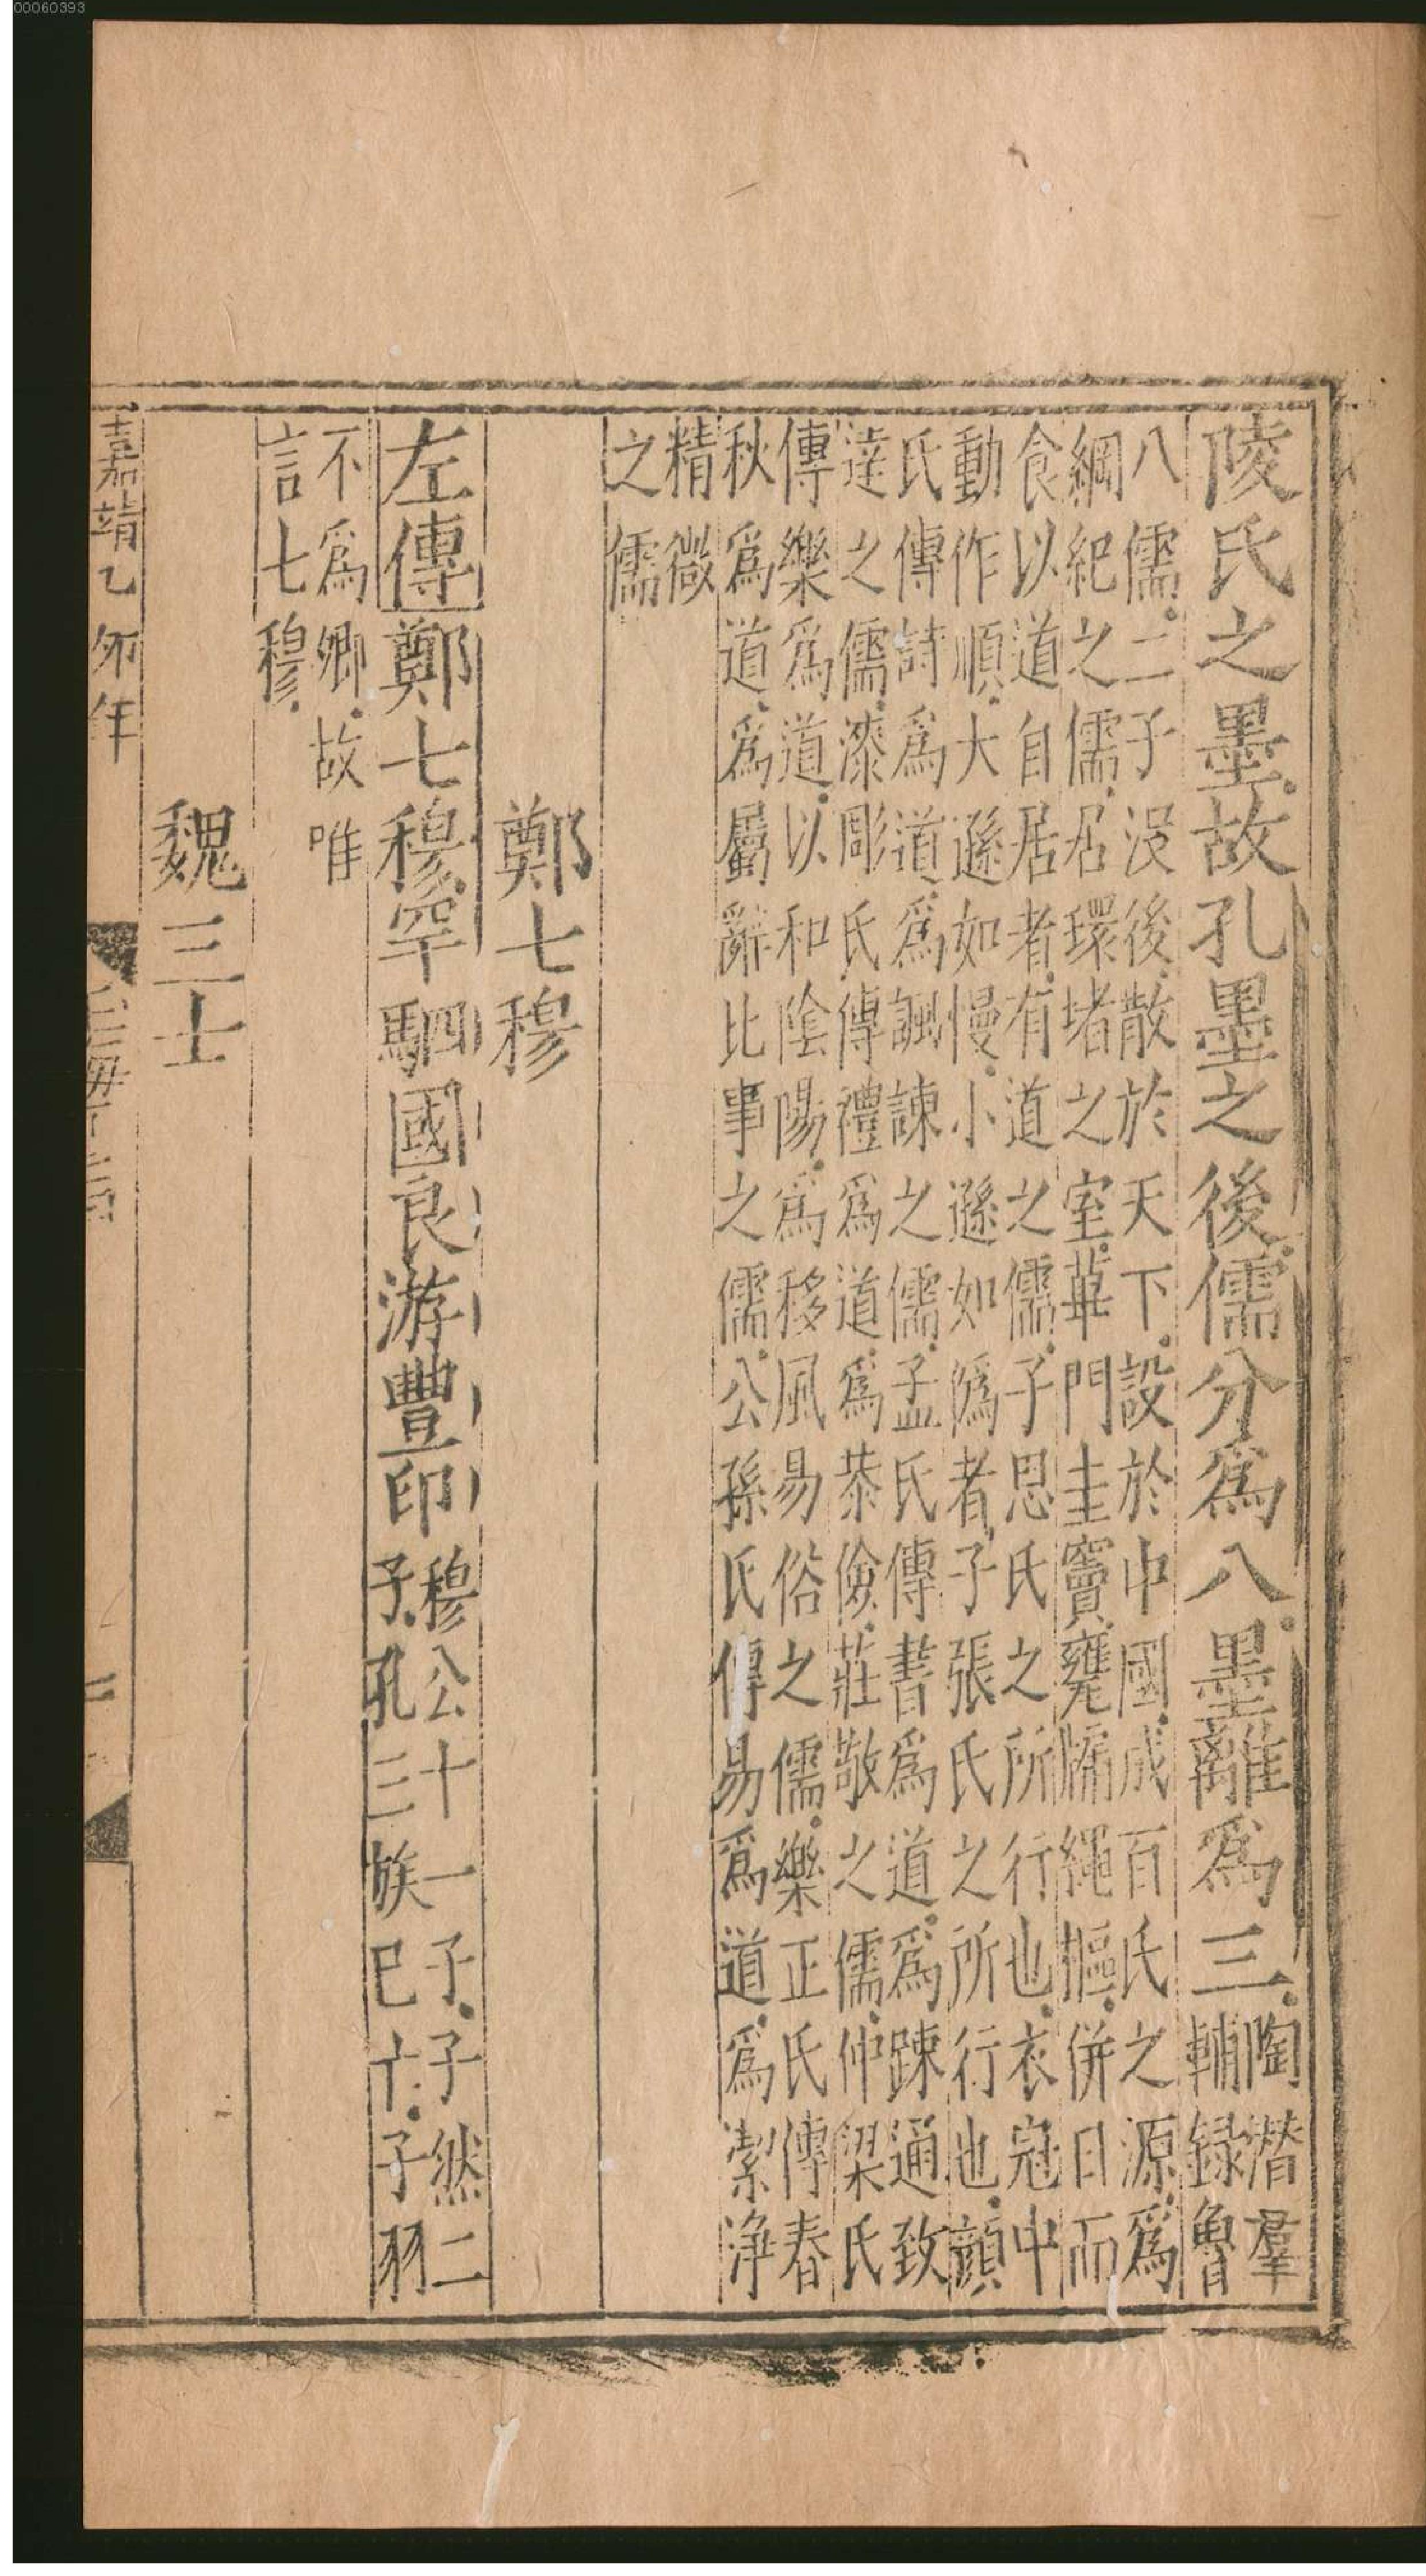 00060393
陵氏之墨故孔墨之後儒分爲八墨離爲三陶潜羣
輔録魯
八儒二子没後散於天下設於中國成百氏之源爲
綱紀之儒居環堵之室蓽門圭竇甕牖繩樞併日而
食以道自居者有道之儒子思氏之所行也衣冠中
動作順大遜如慢小遜如僞者子張氏之所行也顔
氏傳詩爲道爲諷諫之儒孟氏傳書爲道爲踈通致
逹之儒漆彫氏傳禮爲道爲恭儉莊敬之儒仲梁氏
傳樂爲道以和陰陽爲移風易俗之儒樂正氏傳春
秋爲道爲屬辭比事之儒公孫氏傳易爲道爲潔浄
精微
之儒
鄭七穆
左傳鄭七穆罕駟國良游豐印穆公十一子子然二
子孔三族巳亡子羽
不爲卿故唯
言七穆
魏三士
嘉靖乙夘年